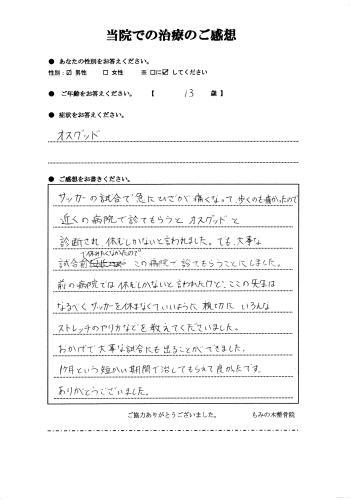 当院での治療のご感想
● あなたの性別をお答えください。
性別：☑ 男性　□ 女性　※ □に☑してください
● ご年齢をお答えください。 【 13 歳 】
● 症状をお答えください。
オスグッド
● ご感想をお書きください。
サッカーの試合で急にひざが痛くなって、歩くのも痛かったので
近くの病院で診てもらうと オスグッドと
診断され、休むしかないと言われました。でも、大事な
で休みたくなかったので
試合前 この病院で診てもらうことにしました。
前の病院では休むしかないと言われたけど、ここの先生は
なるべくサッカーを休まなくていいように、親切に いろんな
ストレッチのやり方などを教えてくださいました。
おかげで大事な試合にも出ることができました。
1ヶ月という短かい期間で治してもらえて良かったです。
ありがとうございました。
ご協力ありがとうございました。　もみの木整骨院